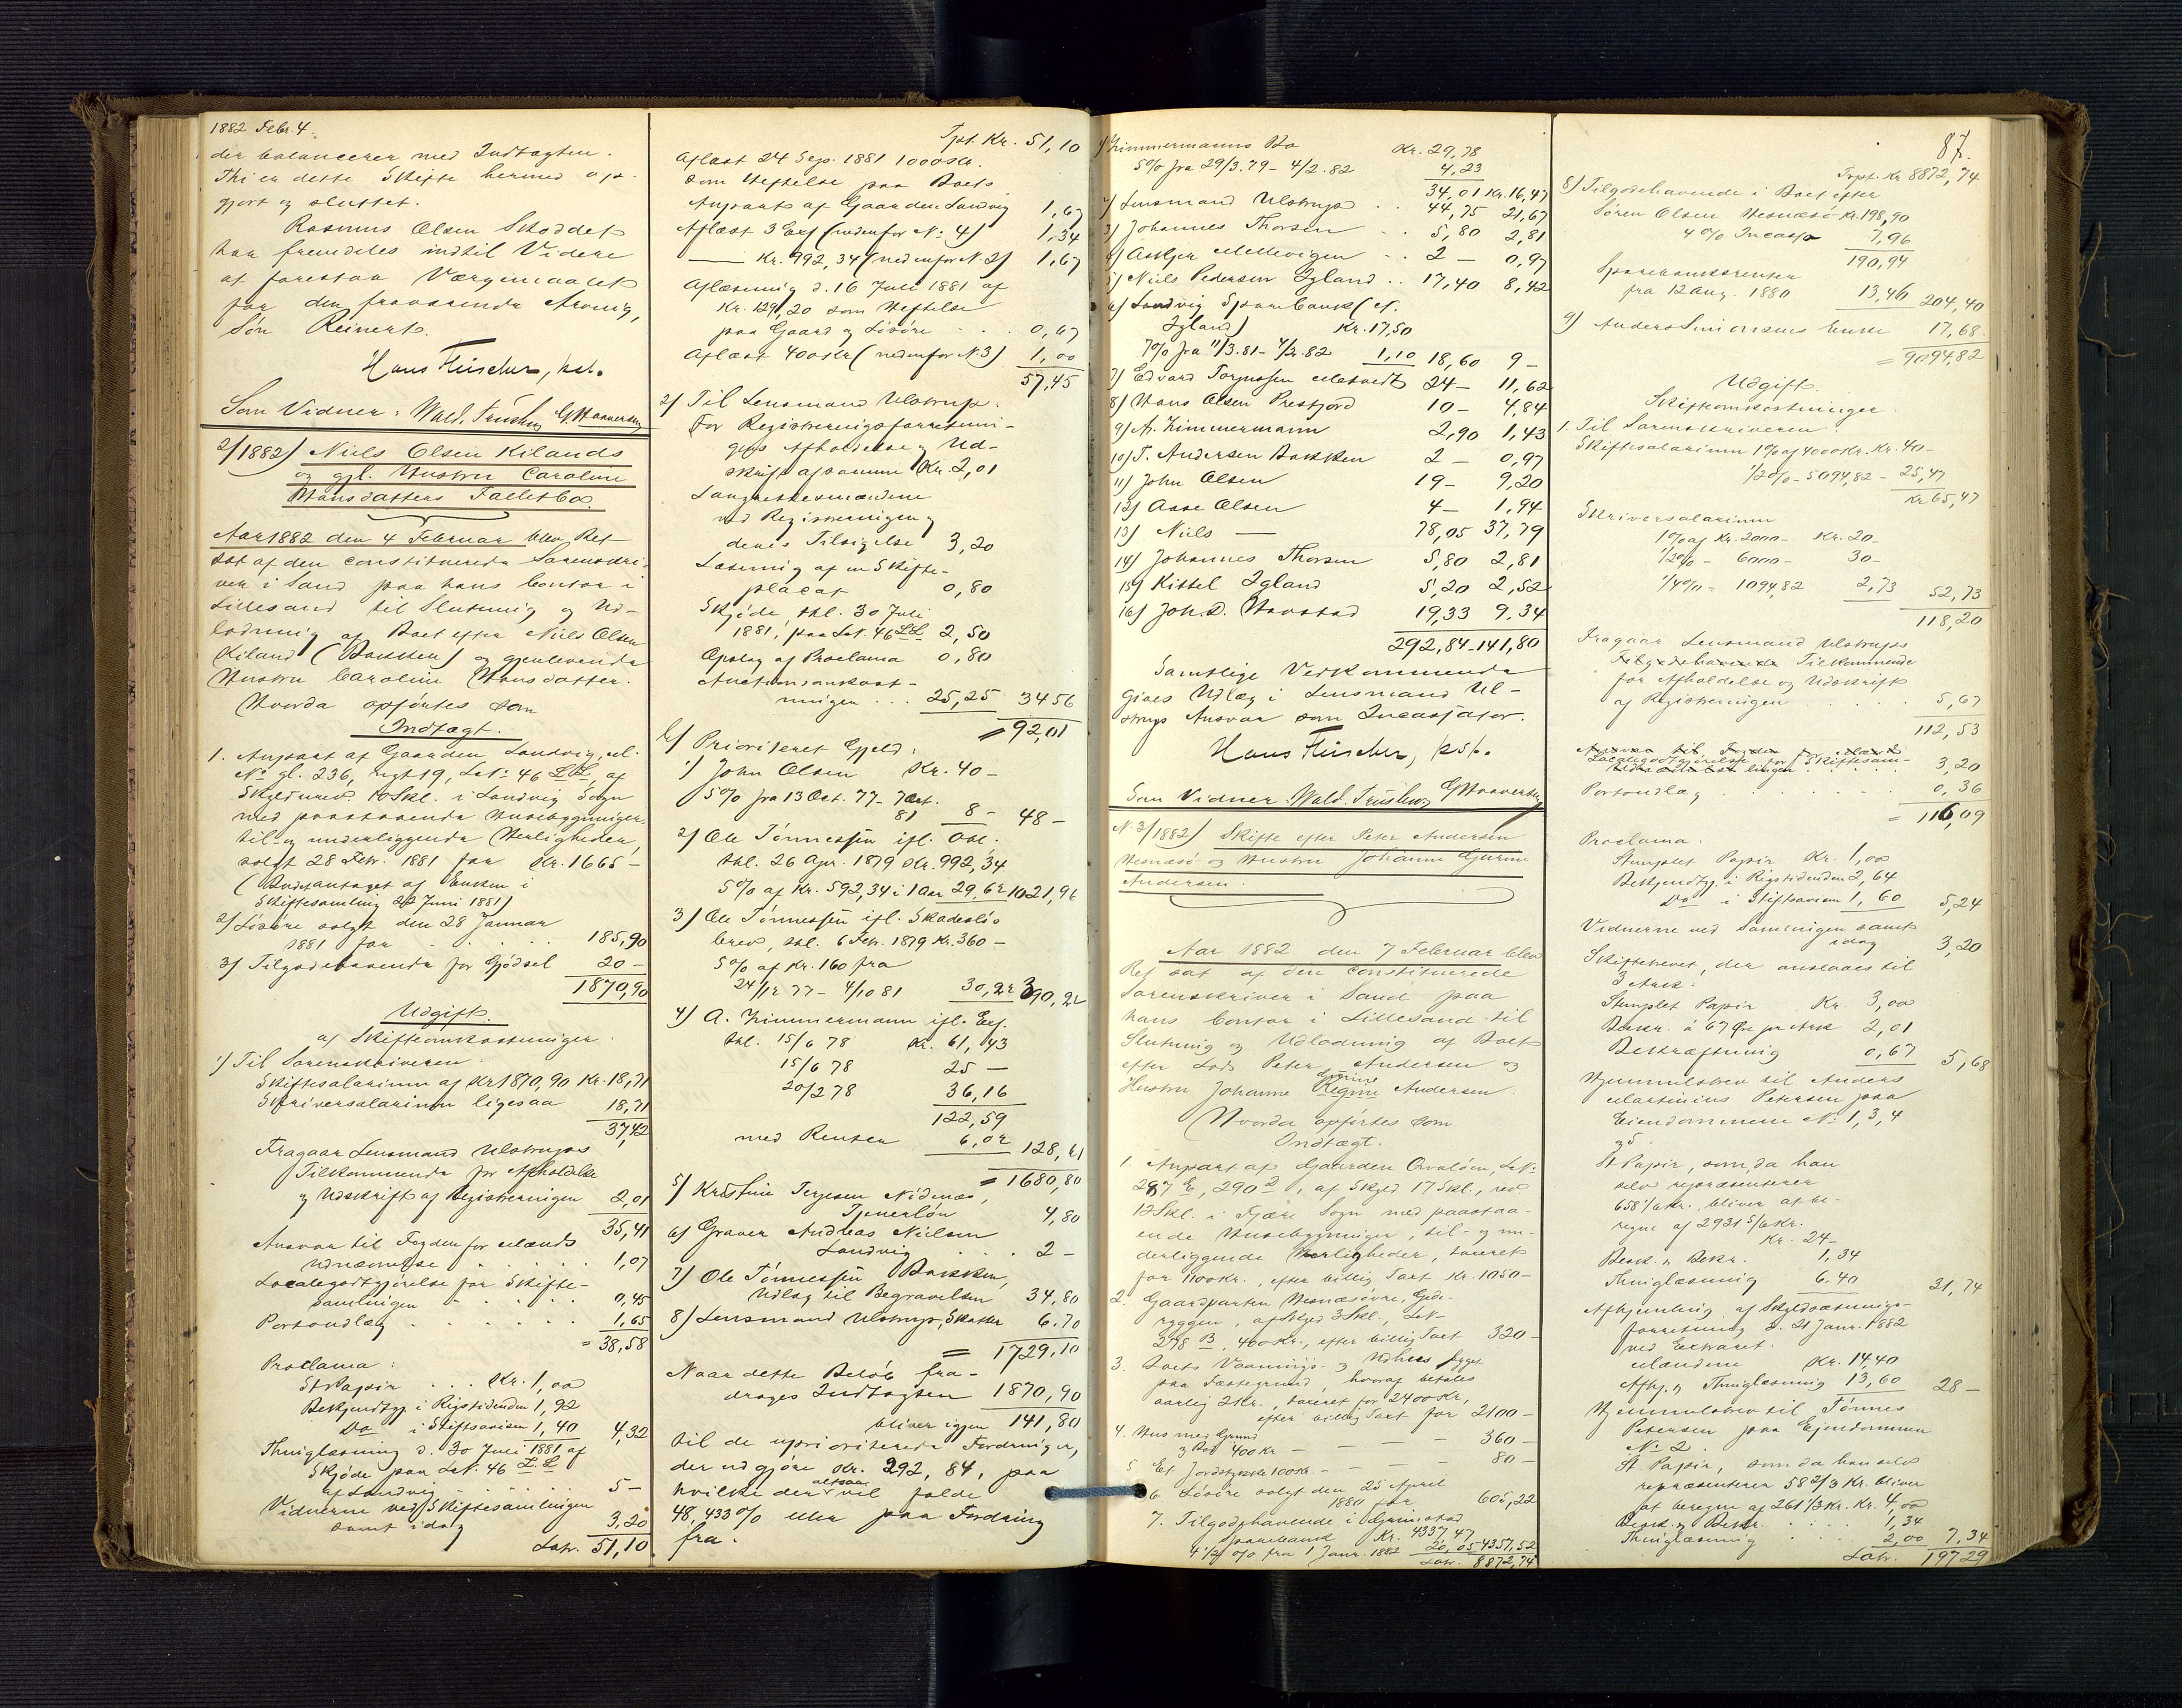 1882 Febr. 4.
der balancerer med Indtægten.
Thi er dette Skifte hermed op-
gjort og sluttet.
Rasmus Olsen Skoddet
har fremdeles indtil Videre
at forestaa Værgemaalet
for den fraværende Arving,
Søn Reinert.
Hans Fleischer, kst.
Som Vidner: Wald. G Haaversen
2/1882) Niels Olsen Kilands
og gjl. Hustru Caroline
Hansdatters Fællesbo.
Aar 1882 den 4 Februar blev Ret
sat af den constituerede Sorenskri-
ver i Sand paa hans Contor i
Lillesand til Slutning og Ud-
lodning af Boet efter Niels Olsen
Kiland (Bakken) og gjenlevende
Hustru Caroline Hansdatter.
Hvorda opførtes som
Indtægt.
1. Anpart af Gaarden Landvig, M.
No gl. 236, nyt 19, L.No 46 LL, af
Skyld urev. 10 Skl. i Landvig Sogn
med paastaaende Husebygninger,
til- og underliggende Herligheder,
solgt 28 Febr. 1881 for Kr. 1665 -
(Budet antaget af Enken i
Skiftesamling 22 Juni 1881)
2) Løsøre solgt den 28 Januar
1881 for . . . . 185,90
3) Tilgodehavende for Gjødsel 20 -
1870,90
Udgift.
a) Skifteomkostninger.
1) Til Sorenskriveren.
Skiftesalarium af Kr 1870,90 Kr. 18,71
Skriversalarium ligesaa 18,71
37,42
Fragaar Lensmand Ulstrups
Tilkommende for Afholdelse
og Udskrift af Registreringen 2,01
35,41
Ansvar til Fogden for Mænds
udnævnelse . . . . 1,07
Localegodtgjørelse for Skifte-
samlingen . . . . 0,45
Portoudlæg . . . . 1,65
= 38,58
Proclama:
St Papir . . . Kr. 1,00
Bekjendtg. i Rigstidenden 1,92
Do i Stiftsavisen 1,40 4,32
Thinglæsning d. 30 Juli 1881 af
Skjøde paa L.No. 46 L.L
af Landvig . . . . 5 -
Vidnerne ved Skiftesamlingen
samt idag 3,20
Latr. 51,10
Tpt. Kr. 51,10
Aflæst 24 Sep. 1881 1000 Kr.
som Heftelse paa Boets
Anpart af Gaarden Landvig 1,67
Aflæst 3 Exf (nedenfor No 4) 1,34
— Kr. 992,34 (nedenfor N. 2) 1,67
Aflæsning d. 16 Juli 1881 af
Kr. 129,20 som Heftelse
paa Gaard og Løsøre . . . 0,67
Aflæst 400 Kr (nedenfor N. 3) 1,00
57,45
2) Til Lensmand Ulstrup:
For Registreringsforretnin-
gens Afholdelse og Ud-
skrift af samme Kr. 2,01
Laugrettesmændene
ved Registreringen og
deres Tilsigelse 3,20
Læsning af en Skifte-
placat 0,80
Skjøde, thl. 30 Juli
1881, paa L.No. 46 LL 2,50
Opslag af Proclama 0,80
Auctionsomkost-
ningen . . . 25,25 34 56
= 92,01
b) Prioriteret Gjeld:
1) John Olsen Kr. 40 -
5% fra 13 Oct. 77 - 7 Oct.
81 8 - 48 -
2) Ole Tønnessen ifl. Obl.
thl. 26 Apr. 1879 Kr. 992,34
5% af Kr. 592,34 i 1 Aar 29,62 1021,96
3) Ole Tønnessen ifl. Skadesløs
brev, thl. 6 Febr. 1879 Kr. 360 -
5% af Kr. 160 fra
24/12 77 - 4/10 81 30,22 390,22
4) A. Zimmermann ifl. Exf.
thl. 15/6 78 Kr. 61,43
15/6 78 25 —
20/2 78 36,16
122,59
med Renter 6,02 128,61
= 1680,80
5) Kristine Terjesen Nidenæs,
Tjenerløn 4,80
6) Graver Andreas Nielsen
Landvig . . . 2 -
7) Ole Tønnessen Bakken,
Udlæg til Begravelsen 34,80
8) Lensmand Ulstrup, Skatter 6.70
= 1729,10
Naar dette Beløb fra-
drages Indtægten 1870,90
bliver igjen 141,80
til de uprioriterede Fordringer,
der udgjøre Kr. 292,84, paa
hvilke der altsaa vil falde
48,433% eller paa Fordring
fra.
1) Zimmermanns Bo Kr. 29,78
5% fra 29/3.79 - 4/2.82 4,23
34,01 Kr. 16,47
2) Lensmand Ulstrup . . 44,75 21,67
3) Johannes Thorsen . . 5,80 2,81
4) Asbjer Mellevigen . . 2 - 0,97
5) Niels Pedersen Igland . . 17,40 8,42
6) Landvig Sparebank (N.
Igland) Kr. 17,50
7% fra 11/3.81 - 4/2.82 1,10 18,60 9 -
7) Edvard Torjussen 24 - 11,62
8) Hans Olsen Prestjord 10 - 4,84
9) A. Zimmermann 2,90 1,43
10) T. Andersen Bakken 2 - 0,97
11) John Olsen 19 - 9,20
12) Aase Olsen 4 - 1,94
13) Niels — 78,05 37,79
14) Johannes Thorsen 5,80 2,81
15) Kittel Igland 5,20 2,52
16) Joh. D. Havstad 19,33 9,34
292,84 - 141,80
Samtlige Vedkommende
gives Udlæg i Lensmand Ul-
strups Ansvar som Incassator.
Hans Fleischer, kst.
Som Vidner: Wald. G Haaversen
No 3/1882) Skifte efter Peter Andersen
Hesnæsø og Hustru Johanne Gurine
Andersen.
Aar 1882 den 7 Februar blev
Ret sat af den constituerede
Sorenskriver i Sand paa
hans Contor i Lillesand til
Slutning og Udlodning af Boet
efter Lods Peter Andersen og
Gurine
Hustru Johanne Regine Andersen.
Hvorda opførtes som
Indtægt.
1. Anpart af Gaarden L.No
287 E, 290 D, af Skyld 17 Skl., rev.
12 Skl. i Fjære Sogn med paastaa-
ende Husebygninger, til- og un-
derliggende Herligheder, taxeret
for 1100 Kr., efter billig Taxt Kr. 1050 -
2. Gaardparten Hesnæsøvre, Gede-
ryggen, af Skyld 3 Skl., L.No
298 B, 400 Kr., efter billig Taxt 320 -
3. Boets Vaanings- og Udhus bygget
paa Fæstegrund, hvoraf betales
aarlig 2 Kr., taxeret for 2400 Kr,
efter billig Taxt for 2100 -
4. Hus med Grund
og Bod 400 Kr — — — — 360 -
5. Et Jordstykke 100 Kr. - — — — 80 -
6. Løsøre solgt den 25 April
1880 for 605,22
7. Tilgodehavende i Grimstad
Sparebank Kr. 4337,47
4 1/2 % fra 1 Janr. 1882 20,05 4357,52
Latr. 8872,74
87.
Trpt. Kr 8872,74
8) Tilgodehavende i Boet efter
Søren Olsen Hesnæsø Kr. 198,90
4% Incasso 7,96
190,94
Sparebanksrenter
fra 12 Aug. 1880 13,46 204,40
9) Anders Simonsens Enke 17,68
= 9094,82
Udgift.
Skifteomkostninger.
1. Til Sorenskriveren.
Skiftesalarium 1% af 4000 Kr. Kr. 40 -
1/2% - 5094,82 - 25,47
Kr 65,47
Skriversalarium
1% af Kr. 2000 - Kr. 20 -
1/2% - 6000 - 30 -
1/4% - 1094,82 2,73 52,73
118,20
Fragaar Lensmand Ulstrups
Tilgodehavende Tilkommende
for Afholdelse og Udskrift
af Registreringen . . . . 5,67
112,53
Ansvar til Fogden for Mænds
Localegodtgjørelse for Skiftesam-
lingen . . . . 3,20
Portoudlæg . . . . 0,36
= 116,09
Proclama.
Stemplet Papir Kr. 1,00
Bekjendtg. i Rigstidenden 2,64
Do i Stiftsavisen 1,60 5,24
Vidnerne ved Samlingen samt
idag 3,20
Skiftebrevet, der anslaaes til
3 Ark:
Stemplet Papir Kr. 3,00
Beskr. à 67 Øre pr Ark 2,01
Bekræftning 0,67 5,68
Hjemmelsbrev til Anders
Martinius Petersen paa
Eiendommene No 1, 3, 4
og 5
St Papir, som, da han
selv repræsenterer
658 1/6 Kr., bliver at be-
regne af 2931 5/6 Kr.
Kr. 24 -
Besk. og Bekr. 1,34
Thinglæsning 6.40 31,74
Afhjemling af Skyldsætnings-
forretning d. 21 Janr. 1882
ved Extraret.
Mændene Kr. 14,40
Afhj. og Thinglæsning 13,60 28 -
Hjemmelsbrev til Tønnes
Petersen paa Ejendommen
No 2.
St Papir, som da han selv
repræsenterer 58 2/3 Kr. bliver
at beregne af 261 1/3 Kr. Kr. 4,00
Besk. og Bekr. . . . . 1,34
Thinglæsning 2,00 7,34
Latr. 197 29